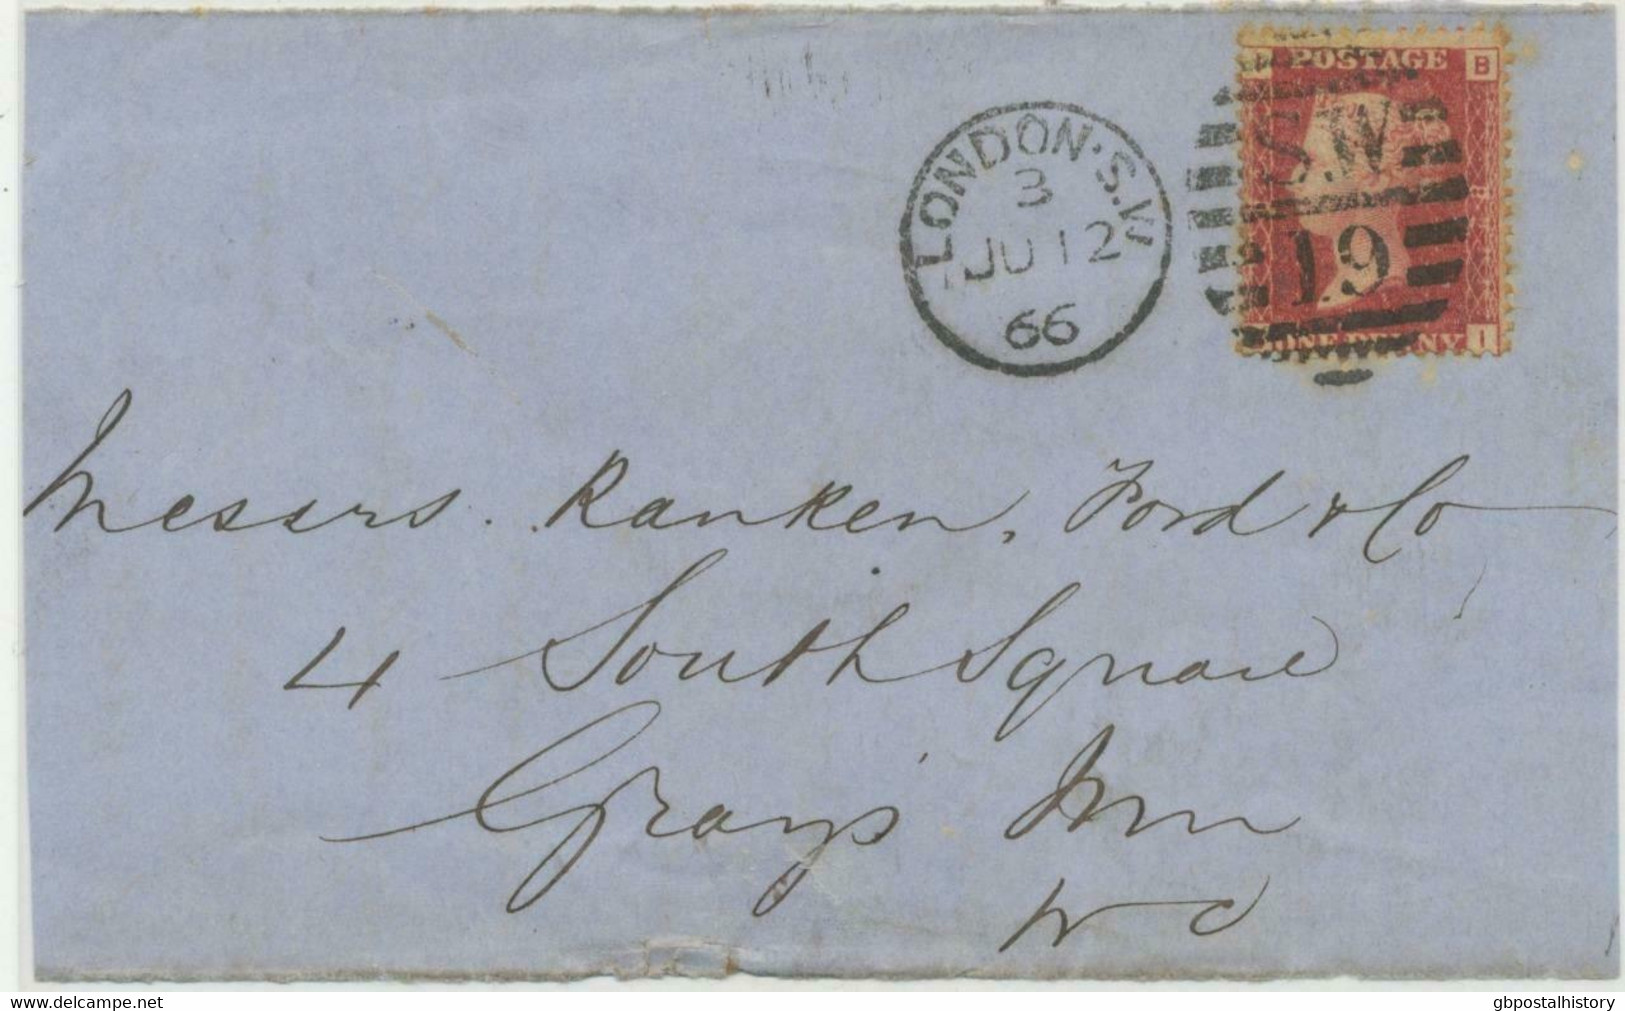 POSTAGE
B
S.W
19
ONE PENNY
I
LONDON·S.W
3
JU 12
66
Messrs. Ranken, Ford & Co
4 South Square
Gray's Inn
W C
www.delcampe.net
gbpostalhistory